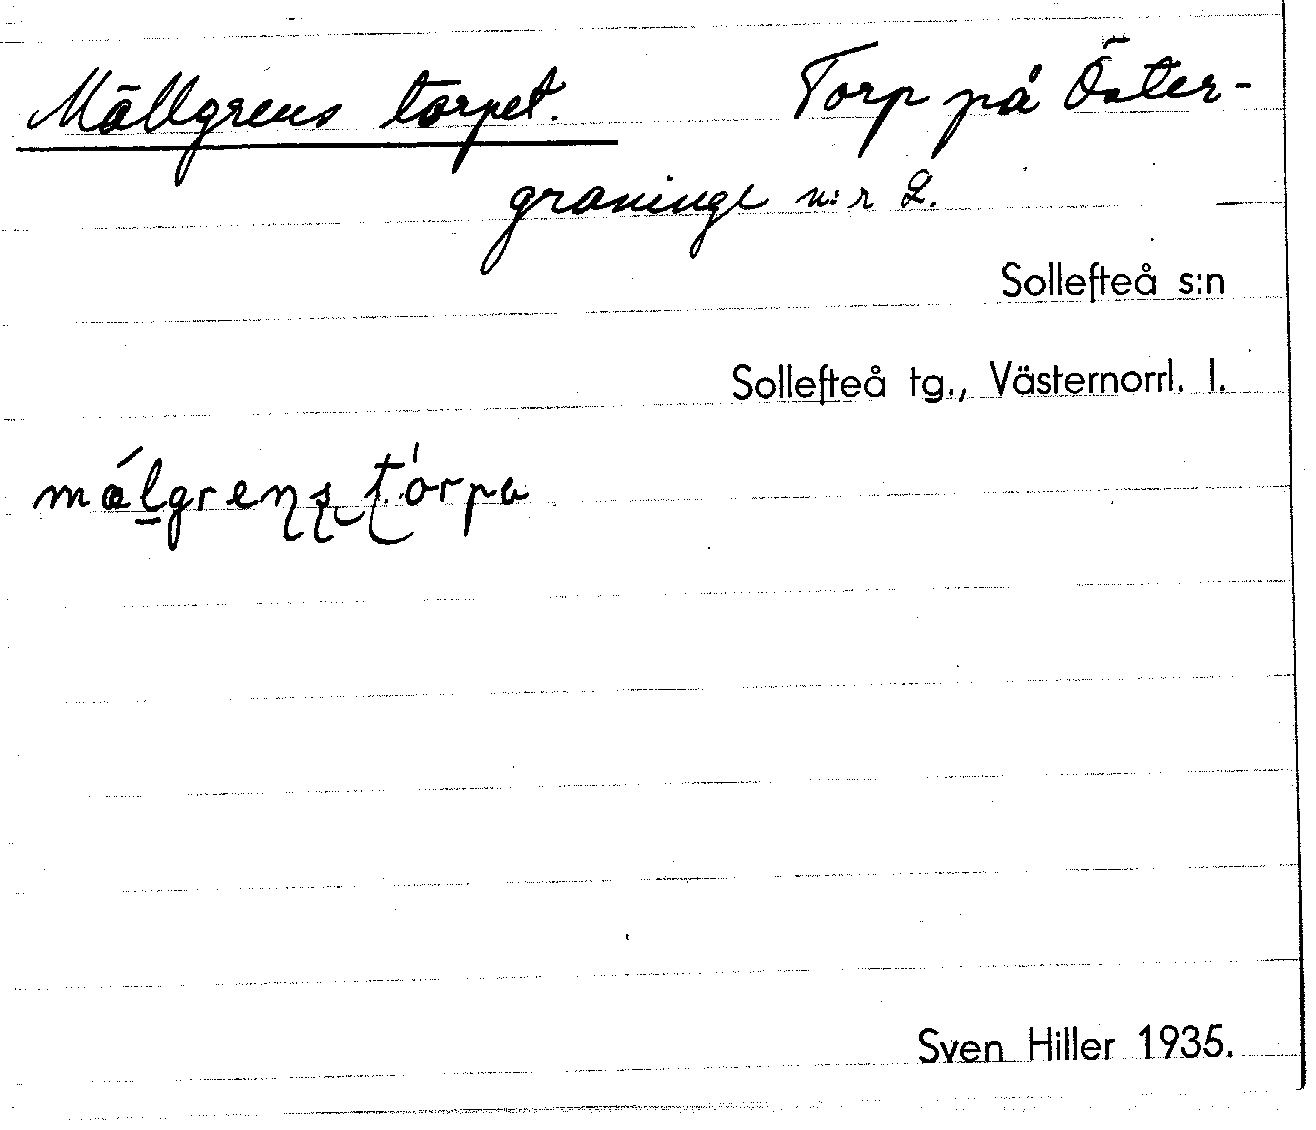 Mällgrens torpet. Torp på Öster-
graninge n:r 2.
Sollefteå s:n
Sollefteå tg., Västernorrl. l.
Sven Hiller 1935.